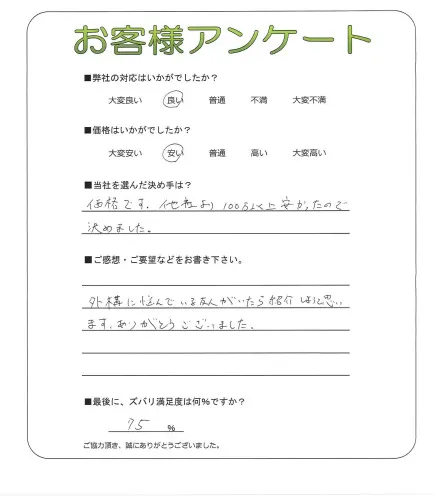 お客様アンケート
■弊社の対応はいかがでしたか？
大変良い 良い 普通 不満 大変不満
■価格はいかがでしたか？
大変安い 安い 普通 高い 大変高い
■当社を選んだ決め手は？
価格です。他社より100万以上安かったので
決めました。
■ご感想・ご要望などをお書き下さい。
外構に悩んでいる友人がいたら紹介しようと思い
ます。ありがとうございました。
■最後に、ズバリ満足度は何%ですか？
75 %
ご協力頂き、誠にありがとうございました。